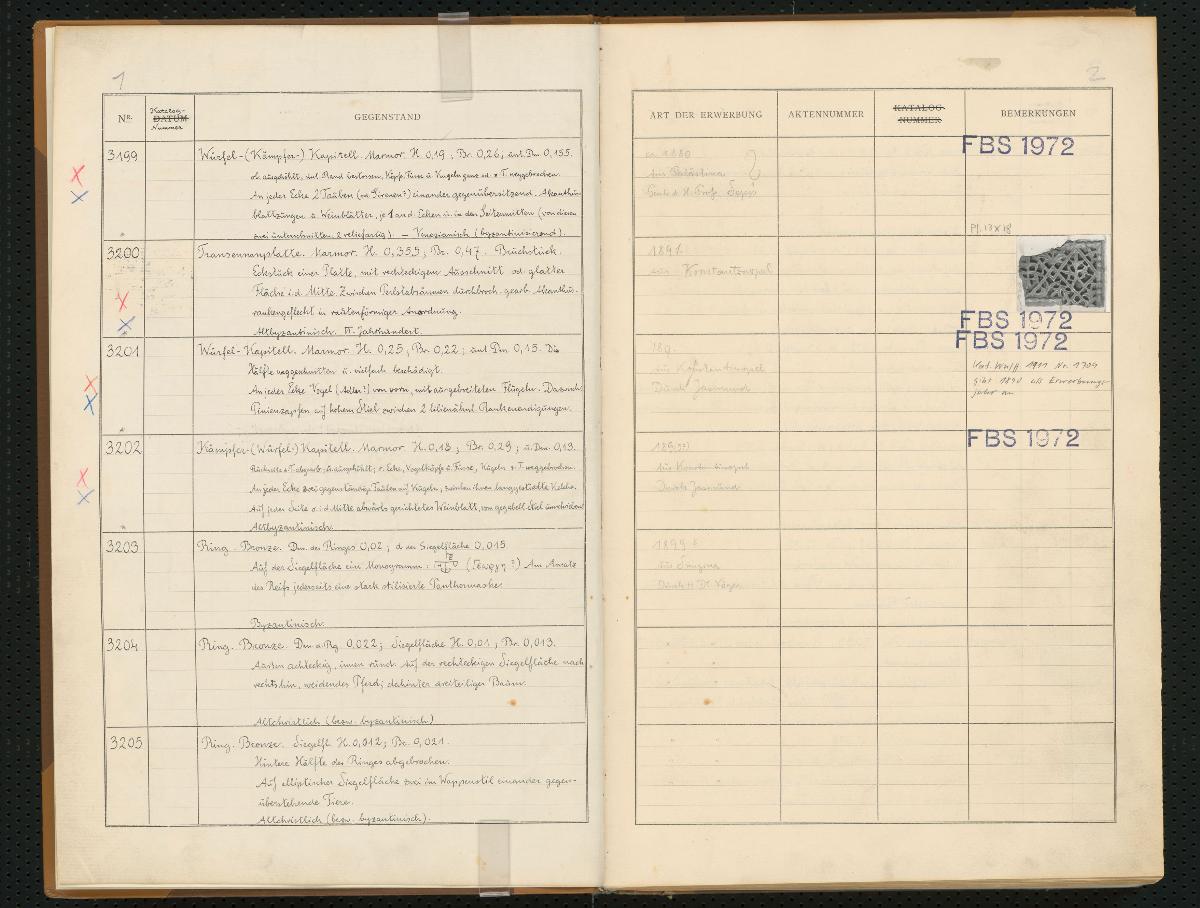 1
Nr.
Katalog-
DATUM
Nummer
GEGENSTAND
3199
Würfel-(Kämpfer-) Kapitell. Marmor. H. 0,19; Br. 0,26; unt. Dm. 0,155.
ob. ausgehöhlt, unt. Rand bestossen, Köpfe, Füsse u. Kugeln ganz od. z. T. weggebrochen.
An jeder Ecke 2 Tauben (od. Sirenen?) einander gegenübersitzend. Akanthus-
blattzungen u. Weinblätter, je 1 an d. Ecken u. in den Seitenmitten (von diesen
zwei unterschnitten, 2 reliefartig). – Venezianisch (byzantinisierend).
3200
Transennenplatte. Marmor. H. 0,355; Br. 0,47. Bruchstück.
Eckstück einer Platte, mit rechteckigem Ausschnitt od. glatter
Fläche i. d. Mitte. Zwischen Perlstabsäumen durchbroch. gearb. Akanthus-
rankengeflecht in rautenförmiger Anordnung.
Altbyzantinisch. VI. Jahrhundert.
3201
Würfel-Kapitell. Marmor. H. 0,25; Br. 0,22; unt. Dm. 0,15. Die
Hälfte weggeschnitten u. vielfach beschädigt.
An jeder Ecke Vogel (Adler?) von vorn, mit ausgebreiteten Flügeln. Dazwisch.
Pinienzapfen auf hohem Stiel zwischen 2 lilienähnl. Rankenendigungen.
3202
Kämpfer-(Würfel-) Kapitell. Marmor. H. 0,18; Br. 0,29; u. Dm. 0,13.
An jeder Ecke zwei gegenständige Tauben auf Kugeln, zwischen ihnen langgestielte Kelche.
Auf jeder Seite o. i. d. Mitte abwärts gerichtetes Weinblatt, von gegabelt. Stiel umschrieben
Altbyzantinisch.
3203
Ring. Bronze. Dm. des Ringes 0,02; d. der Siegelfläche 0,015.
Auf der Siegelfläche ein Monogramm: Am Ansatz
des Reifs jederseits eine stark stilisierte Panthermaske.
Byzantinisch.
3204
Ring. Bronze. Dm. d. Rg. 0,022; Siegelfläche H. 0,01; Br. 0,013.
Aussen achteckig, innen rund. Auf der rechteckigen Siegelfläche nach
rechtshin, weidendes Pferd; dahinter dreiteiliger Baum.
Altchristlich (bezw. byzantinisch)
3205
Ring. Bronze. Siegelfl. H. 0,012; Br. 0,021.
Hintere Hälfte des Ringes abgebrochen.
Auf elliptischer Siegelfläche zwei im Wappenstil einander gegen-
überstehende Tiere.
Altchristlich (bezw. byzantinisch).
2
ART DER ERWERBUNG
AKTENNUMMER
KATALOG-
NUMMER
BEMERKUNGEN
FBS 1972
1880
aus Palästina
Pl. 13x18
1891
aus Konstantinopel
FBS 1972
FBS 1972
189
aus Konstantinopel
Durch Jasmund
Kat. Wulff 1911 Nr. 1704
gibt 1890 als Erwerbungs-
jahr an
FBS 1972
aus Konstantinopel
Durch Jasmund
1899
aus Smyrna